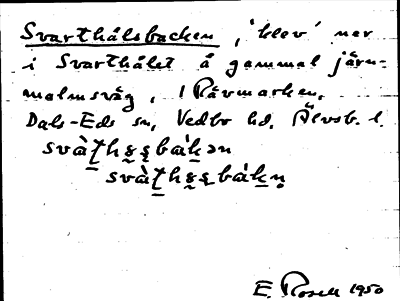 Svarthålsbacken, 'klev' ner
i Svarthålet å gammal järn-
malmsväg, i Rävmarken,
Dals-Eds sn, Vedbo hd, Älvsb. l.
E. Rosell 1950